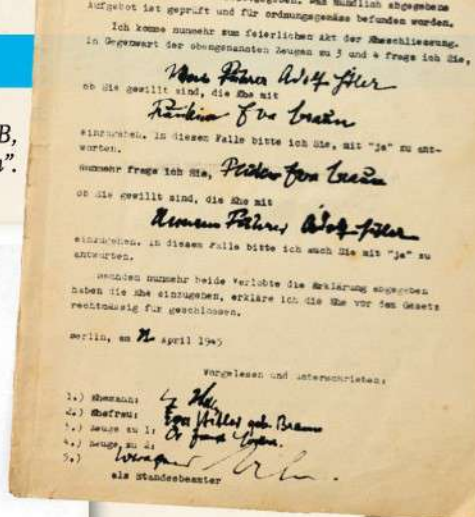 B,
".
Aufgebot ist geprüft und für ordnungsgemäss befunden worden.
Ich komme nunmehr zum feierlichen Akt der Eheschliessung.
In Gegenwart der obengenannten Zeugen zu 3 und 4 frage ich Sie,
Mein Führer Adolf Hitler
ob Sie gewillt sind, die Ehe mit
Fräulein Eva Braun
einzugehen. In diesem Falle bitte ich Sie, mit "ja" zu ant-
worten.
Nunmehr frage ich Sie, Fräulein Eva Braun
ob Sie gewillt sind, die Ehe mit
meinem Führer Adolf Hitler
einzugehen. In diesem Falle bitte ich auch Sie mit "ja" zu
antworten.
Nachdem nunmehr beide Verlobte die Erklärung abgegeben
haben die Ehe einzugehen, erkläre ich die Ehe vor dem Gesetz
rechtmässig für geschlossen.
Berlin, am April 1945
Vorgelesen und unterschrieben:
1.) Ehemann:
2.) Ehefrau: Eva Hitler geb. Braun
3.) Zeuge zu 1:
4.) Zeuge zu 2:
5.)
als Standesbeamter